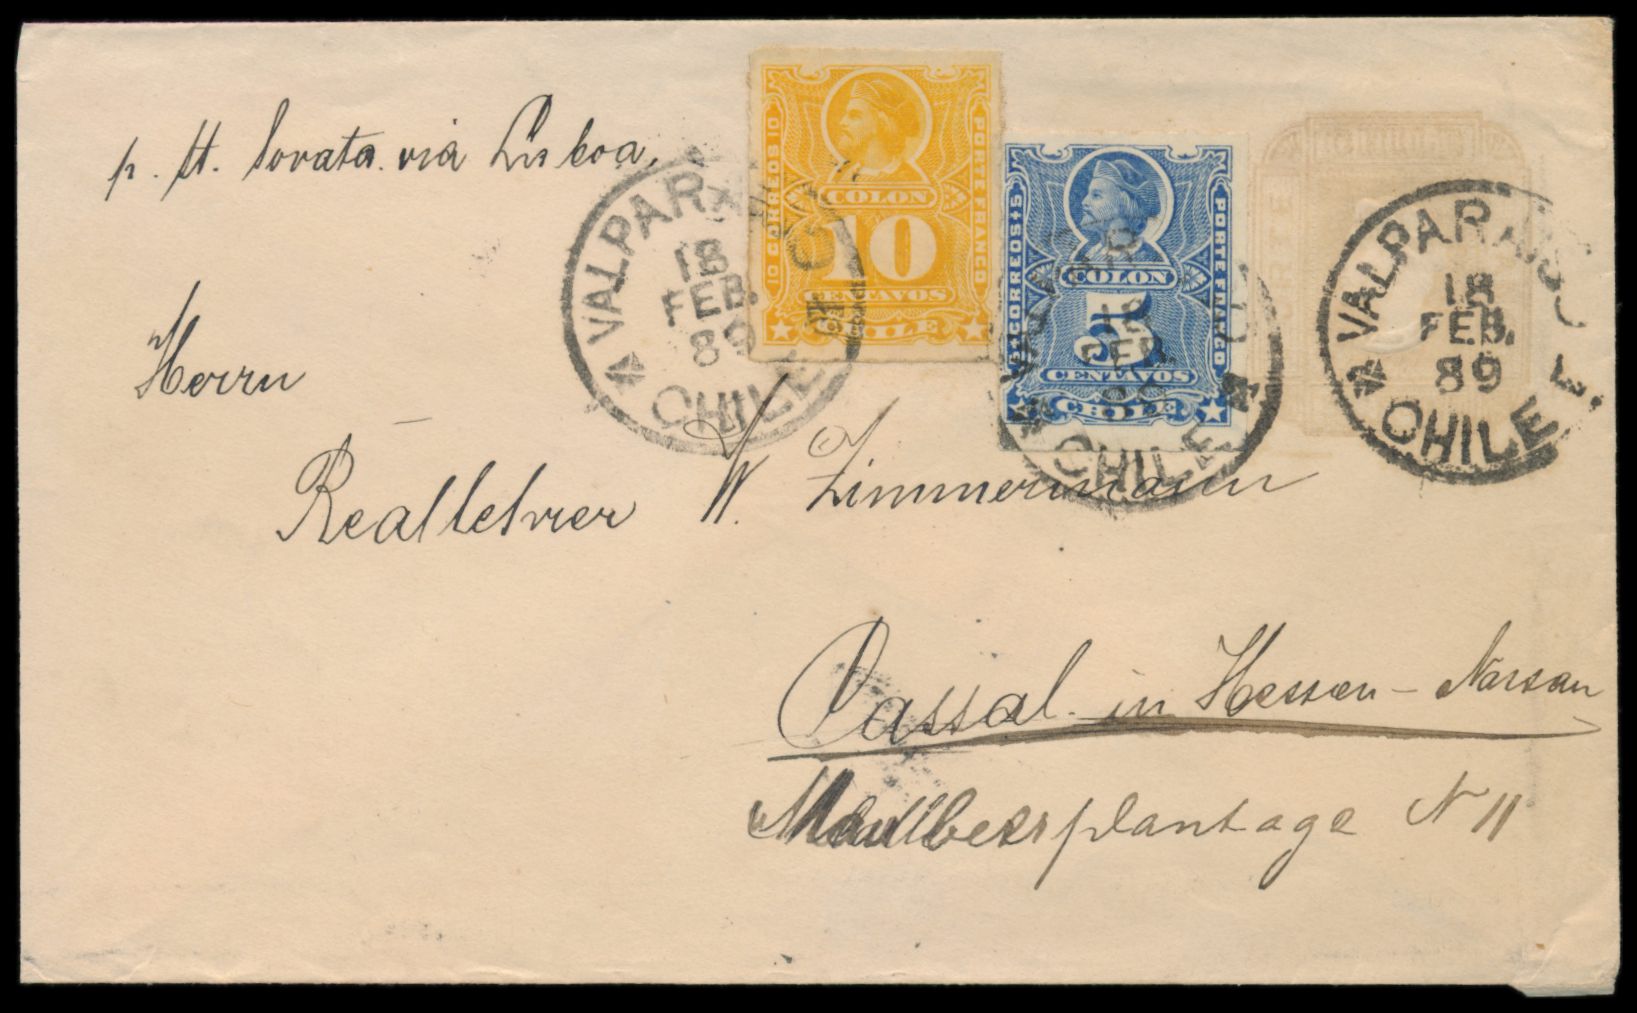 p. St. Sorata via Lisboa.
10 CORREOS 10
PORTE FRANCO
COLON
10
CENTAVOS
CHILE
5 CORREOS 5
PORTE FRANCO
COLON
5
CENTAVOS
CHILE
VALPARAISO
18
FEB.
89
CHILE
VALPARAISO
18
FEB.
89
CHILE
VALPARAISO
18
FEB.
89
CHILE
Herrn
Reallehrer W. Zimmermann
Cassel in Hessen-Nassau
Maulbeerplantage N 11